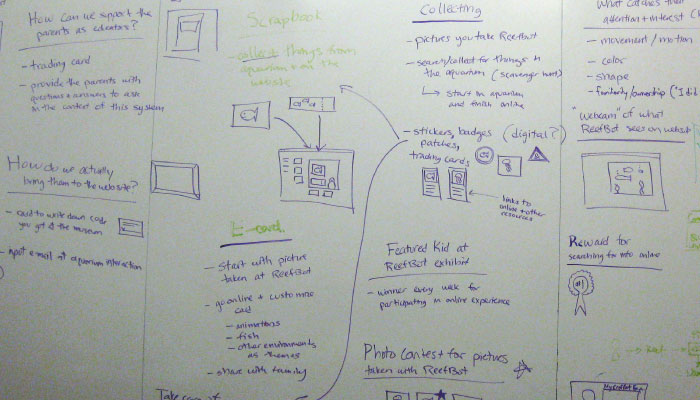 How can we support the
parents as educators?
- trading card
- provide the parents with
questions + answers to ask
in the context of this system
How do we actually
bring them to the website?
- card to write down code
you get @ the museum
- input email at aquarium interaction
Scrapbook
- collect things from
aquarium + on the
website
E-card
- start with picture
taken at ReefBot
- go online + customize
card
- animations
- fish
- other environments
as themes
- share with family
Collecting
- pictures you take ReefBot
- search/collect for things in
the aquarium (scavenger hunt)
↳ start in aquarium
and finish online
- stickers, badges (digital?)
patches,
trading cards
links to
online + other
resources
Featured Kid at
ReefBot exhibit
- winner every week for
participating in online experience
Photo Contest for pictures
taken with ReefBot
What catches their
attention + interest
- movement/motion
- color
- shape
- familiarity/ownership ("I did
"webcam" of what
ReefBot sees on website
Reward for
searching for info online
#1